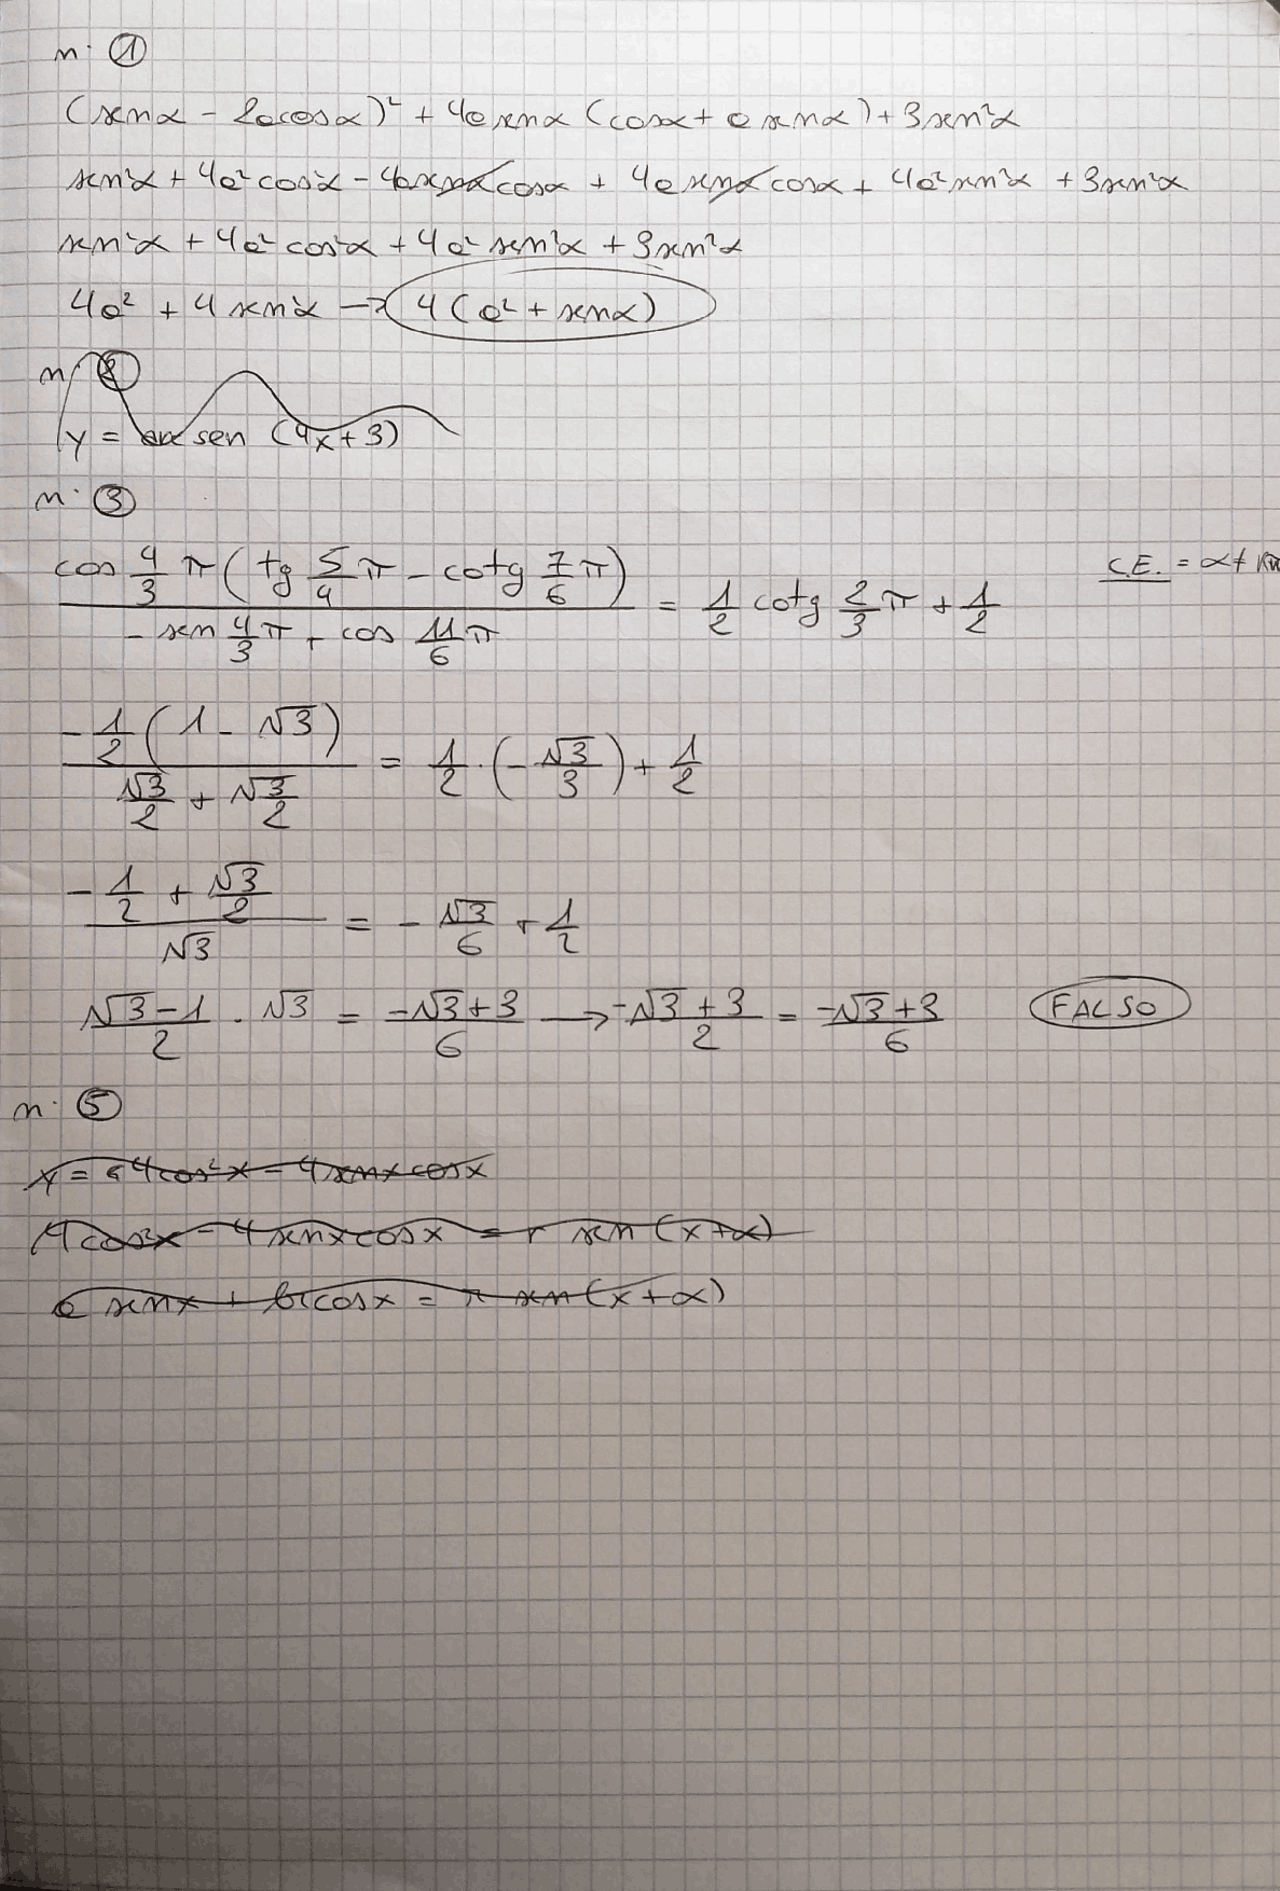 n. 1
(senα - 2acosα)² + 4a senα (cosα + a senα) + 3sen²α
sen²α + 4a²cos²α - 4a senα cosα + 4a senα cosα + 4a² sen²α + 3sen²α
sen²α + 4a² cos²α + 4a² sen²α + 3sen²α
4a² + 4 sen²α → 4 (a² + senα)
n. 2
y = arc sen (4x + 3)
n. 3
cos 4/3 π ( tg 5/4 π - cotg 7/6 π ) / - sen 4/3 π + cos 11/6 π = 1/2 cotg 2/3 π + 1/2 C.E. = α ≠ kπ
-1/2 ( 1 - √3 ) / √3/2 + √3/2 = 1/2 · ( - √3/3 ) + 1/2
-1/2 + √3/2 / √3 = - √3/6 + 1/2
√3-1/2 · √3 = -√3+3/6 → -√3+3/2 = -√3+3/6 FALSO
n. 5
y = 4cos²x - 4senxcosx
4cos²x - 4senxcosx = r sen (x+α)
a senx + b cosx = r sen (x+α)